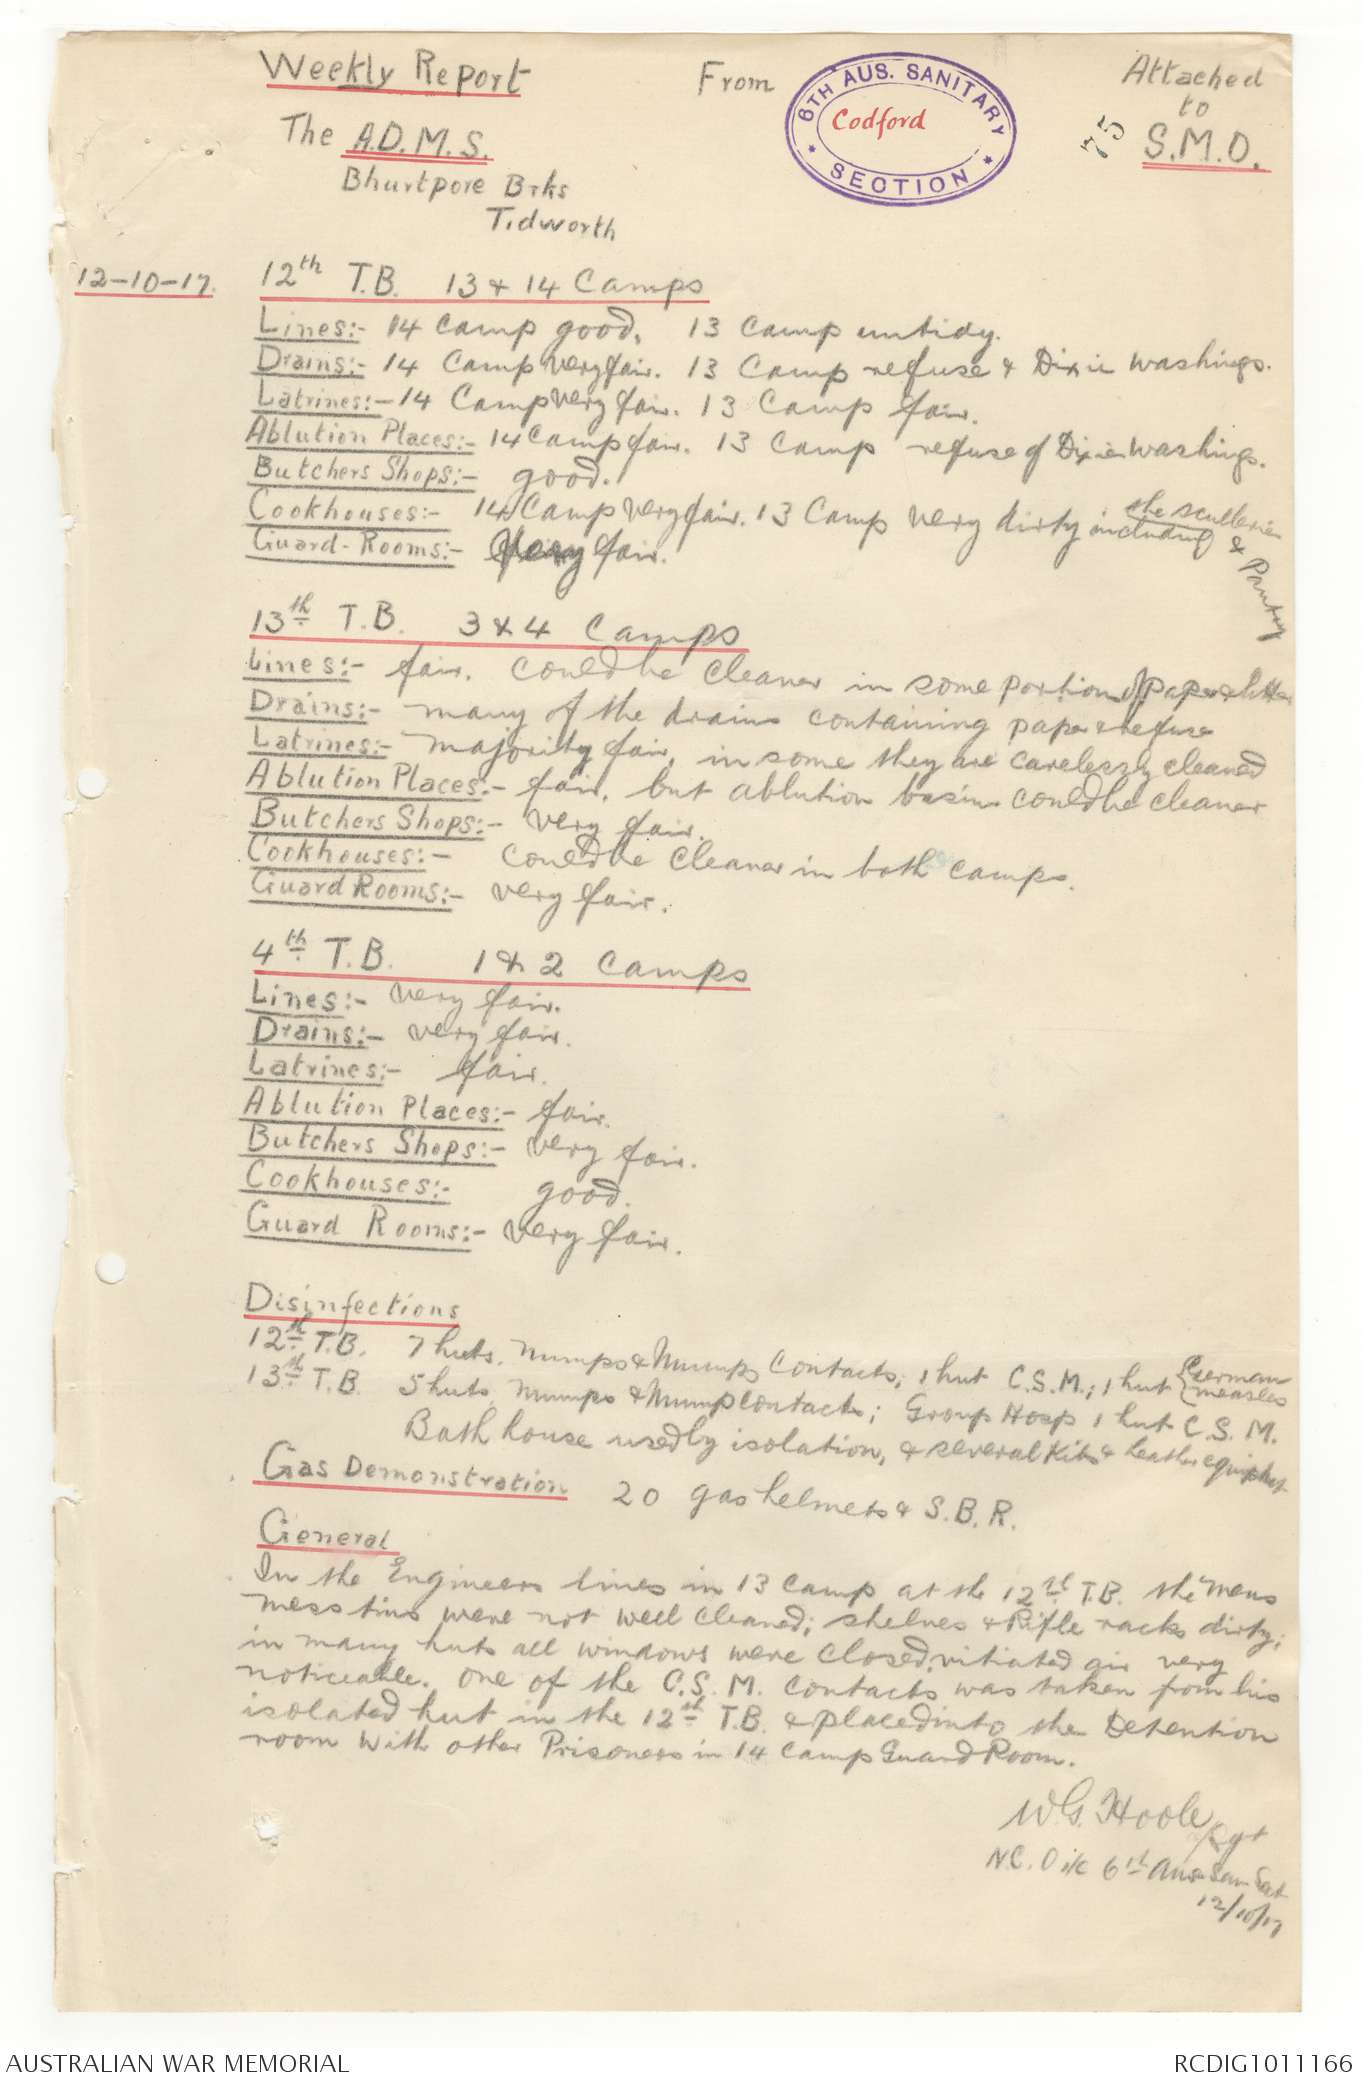 Weekly Report From 6TH AUS. SANITARY SECTION Codford Attached
to
75
The A.D.M.S. S.M.O.
Bhurtpore Brks
Tidworth
12-10-17. 12th T.B. 13 & 14 Camps
Lines:- 14 Camp good, 13 Camp untidy.
Drains:- 14 Camp very fair. 13 Camp refuse & Dixie washings.
Latrines:- 14 Camp very fair. 13 Camp fair.
Ablution Places:- 14 Camp fair. 13 Camp refuse of Dixie washings.
Butchers Shops:- good.
Cookhouses:- 14 Camp very fair. 13 Camp very dirty including the sculleries & Pantry
Guard-Rooms:- Very fair.
13th T.B. 3 & 4 Camps
Lines:- fair. Could be cleaner in some portions of paper & litter
Drains:- many of the drains containing paper & refuse
Latrines:- majority fair, in some they are carelessly cleaned
Ablution Places:- fair, but ablution basins could be cleaner
Butchers Shops:- very fair.
Cookhouses:- could be cleaner in both camps.
Guard Rooms:- very fair.
4th T.B. 1 & 2 Camps
Lines:- very fair.
Drains:- very fair.
Latrines:- fair.
Ablution Places:- fair.
Butchers Shops:- very fair.
Cookhouses:- good.
Guard Rooms:- very fair.
Disinfections
12th T.B. 7 huts, mumps & Mumps Contacts; 1 hut C.S.M.; 1 hut {German measles
13th T.B. 5 huts, mumps & Mump contacts; Group Hosp 1 hut C.S.M.
Bath house used by isolation, & several Kits & leather equipket
Gas Demonstration 20 gas helmets & S.B.R.
General
In the Engineers lines in 13 Camp at the 12th T.B. the mens
mess tins were not well cleaned; shelves & Rifle racks dirty;
in many huts all windows were closed, vitiated air very
noticeable. One of the C.S.M. Contacts was taken from his
isolated hut in the 12th T.B. & placed into the Detention
room with other Prisoners in 14 Camp Guard Room.
W.G. Hoole Sgt
N.C.O i/c 6th Aus San Sect
12/10/17
AUSTRALIAN WAR MEMORIAL RCDIG1011166